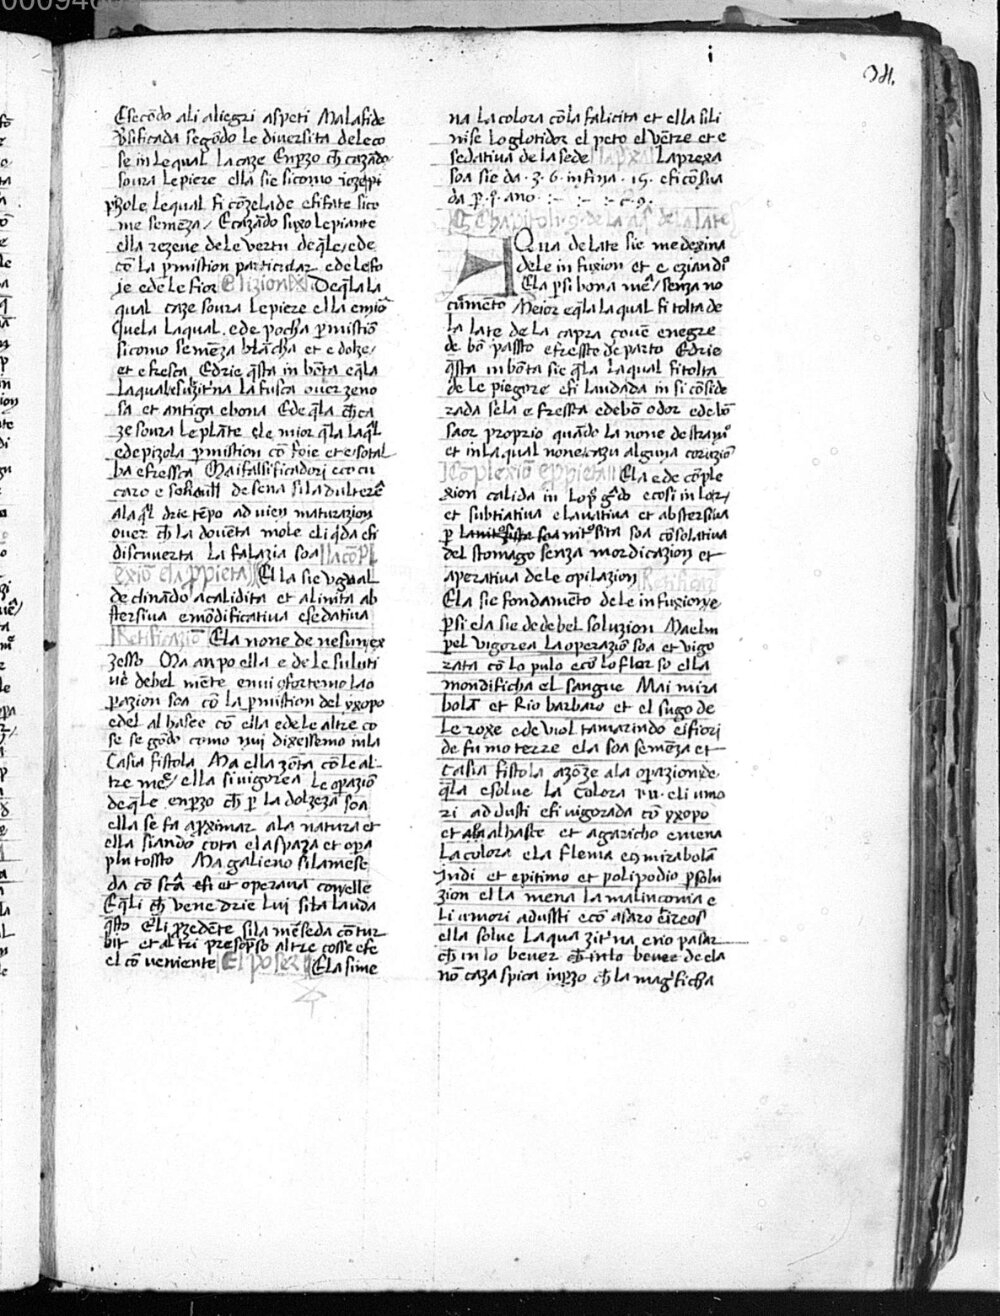 i
94.
E secōdo ali aliegri aspeti Mala fide
Vsificada segōdo le diversita dele co
se in le qual la caze Enpzo ch cazādo
soura le piere ella sie sicomo
pizole le qual si cōzelade e si fate sico
me semeza / E cazādo suxo le piante
ella rezeue dele vertu de qle / e de
cō la pmistion particular e dele fo
ie e de le fior Elizion De qla la
qual caze soura le piere ella e mio
Quela la qual e de pocha pmistiō
sicomo semēza blācha et e dolze /
et e fresca Edrie qsta in bōta e qla
la qual la fusca over zeno
sa et antiga e bona E de qla ch ca
ze soura le plāte ele mior qla la ql
e de pizola pmistion co foie et e sotal
ba e fressca Ma i falsificadori
caro e de sena si la dulterē
ala ql drie tēpo ad vien maturazion
over ch la doventa mole e liqda e si
discuverta la falazia soa la cōpl
exiō e la ppieta Ella sie vgual
declinādo a calidita et a limita ab
stersiva e mōdificativa e sedativa
Retificaziō Ela none de nesun ex
zesso Ma an po ella e de le soluti
ve debel mente e nui gfortemo la o
pazion soa cō la pmistion del yxopo
e del alhasce cō ella e dele altre co
se segōdo como nui dixessemo in la
Casia fistola Ma ella zōta cō le al
tre me / ella si vigorea le opaziō
de qle enpzo ch p la dolzeza soa
ella se fa apximar ala natura et
ella siando cota ela spaza et opa
plu tossto Ma galieno si la mese
da cō e si et operava con elle
E qli ch vene drie lui si la lauda
qsto E li pzedente si la meseda cō tur
bit et altri presopso altre cosse e fe
el cōveniente El poser Ela si me
na la colora cō la falicita et ella si li
nise lo glotidor el peto el vētre et e
sedativa de la sede La prexa
soa sie da . 3 . 6 . infina . 15 . e si cōsua
da p . i . ano
Chapitolo 9 de la aq de la late
AQua de late sie medexina
dele infuxion et e eziandio
Ela p si bona me / senza no
cumēto Meior e qla la qual si tolta de
la late de la capra zovē e negre
de bō passto e fressto de parto Edrie
qsta in bōta sie qla la qual si tolta
de le piegore e si laudada in si cōside
rada se la e fressta e de bō odor e de bō
saor proprio quādo la none destranio
et in la qual none cazu alguna coruziō
Cōplexiō e ppieta Ela e de cōple
xion calida in lo p gdo e cosi in lotr /
et subtiativa e lavativa et abstersiva
p la nitrosita soa cōsolativa
del stomago senza mordicazion et
aperativa dele opilazion Retificazi
Ela sie fondamēto dele infuxion / e
p si ela sie de debel soluzion Ma el in
pel vigorea la operaziō soa et vigo
rata cō lo pulo e cō lo flor so ella
mondificha el sangue Ma i mira
bolā et Rio barbaro et el sugo de
le roxe e de viol tamarindo e i fiori
de fumo terre ela soa semēza et
Casia fistola azōze ala opazion de
qla e solve la colora ru. e li umo
ri adusti e si vigorada cō yxopo
et alhaste et agaricho e mena
la colora e la flema e q mirabolā
Indi et epitimo et polipodio psolu
zion ella mena la malinconia e
li umori adussti e cō asaro e ireos
ella solve la qua zitrna e no pasar
ch in lo bever ch in lo bever de ela
nō caza spica inpzo ch la magrficha